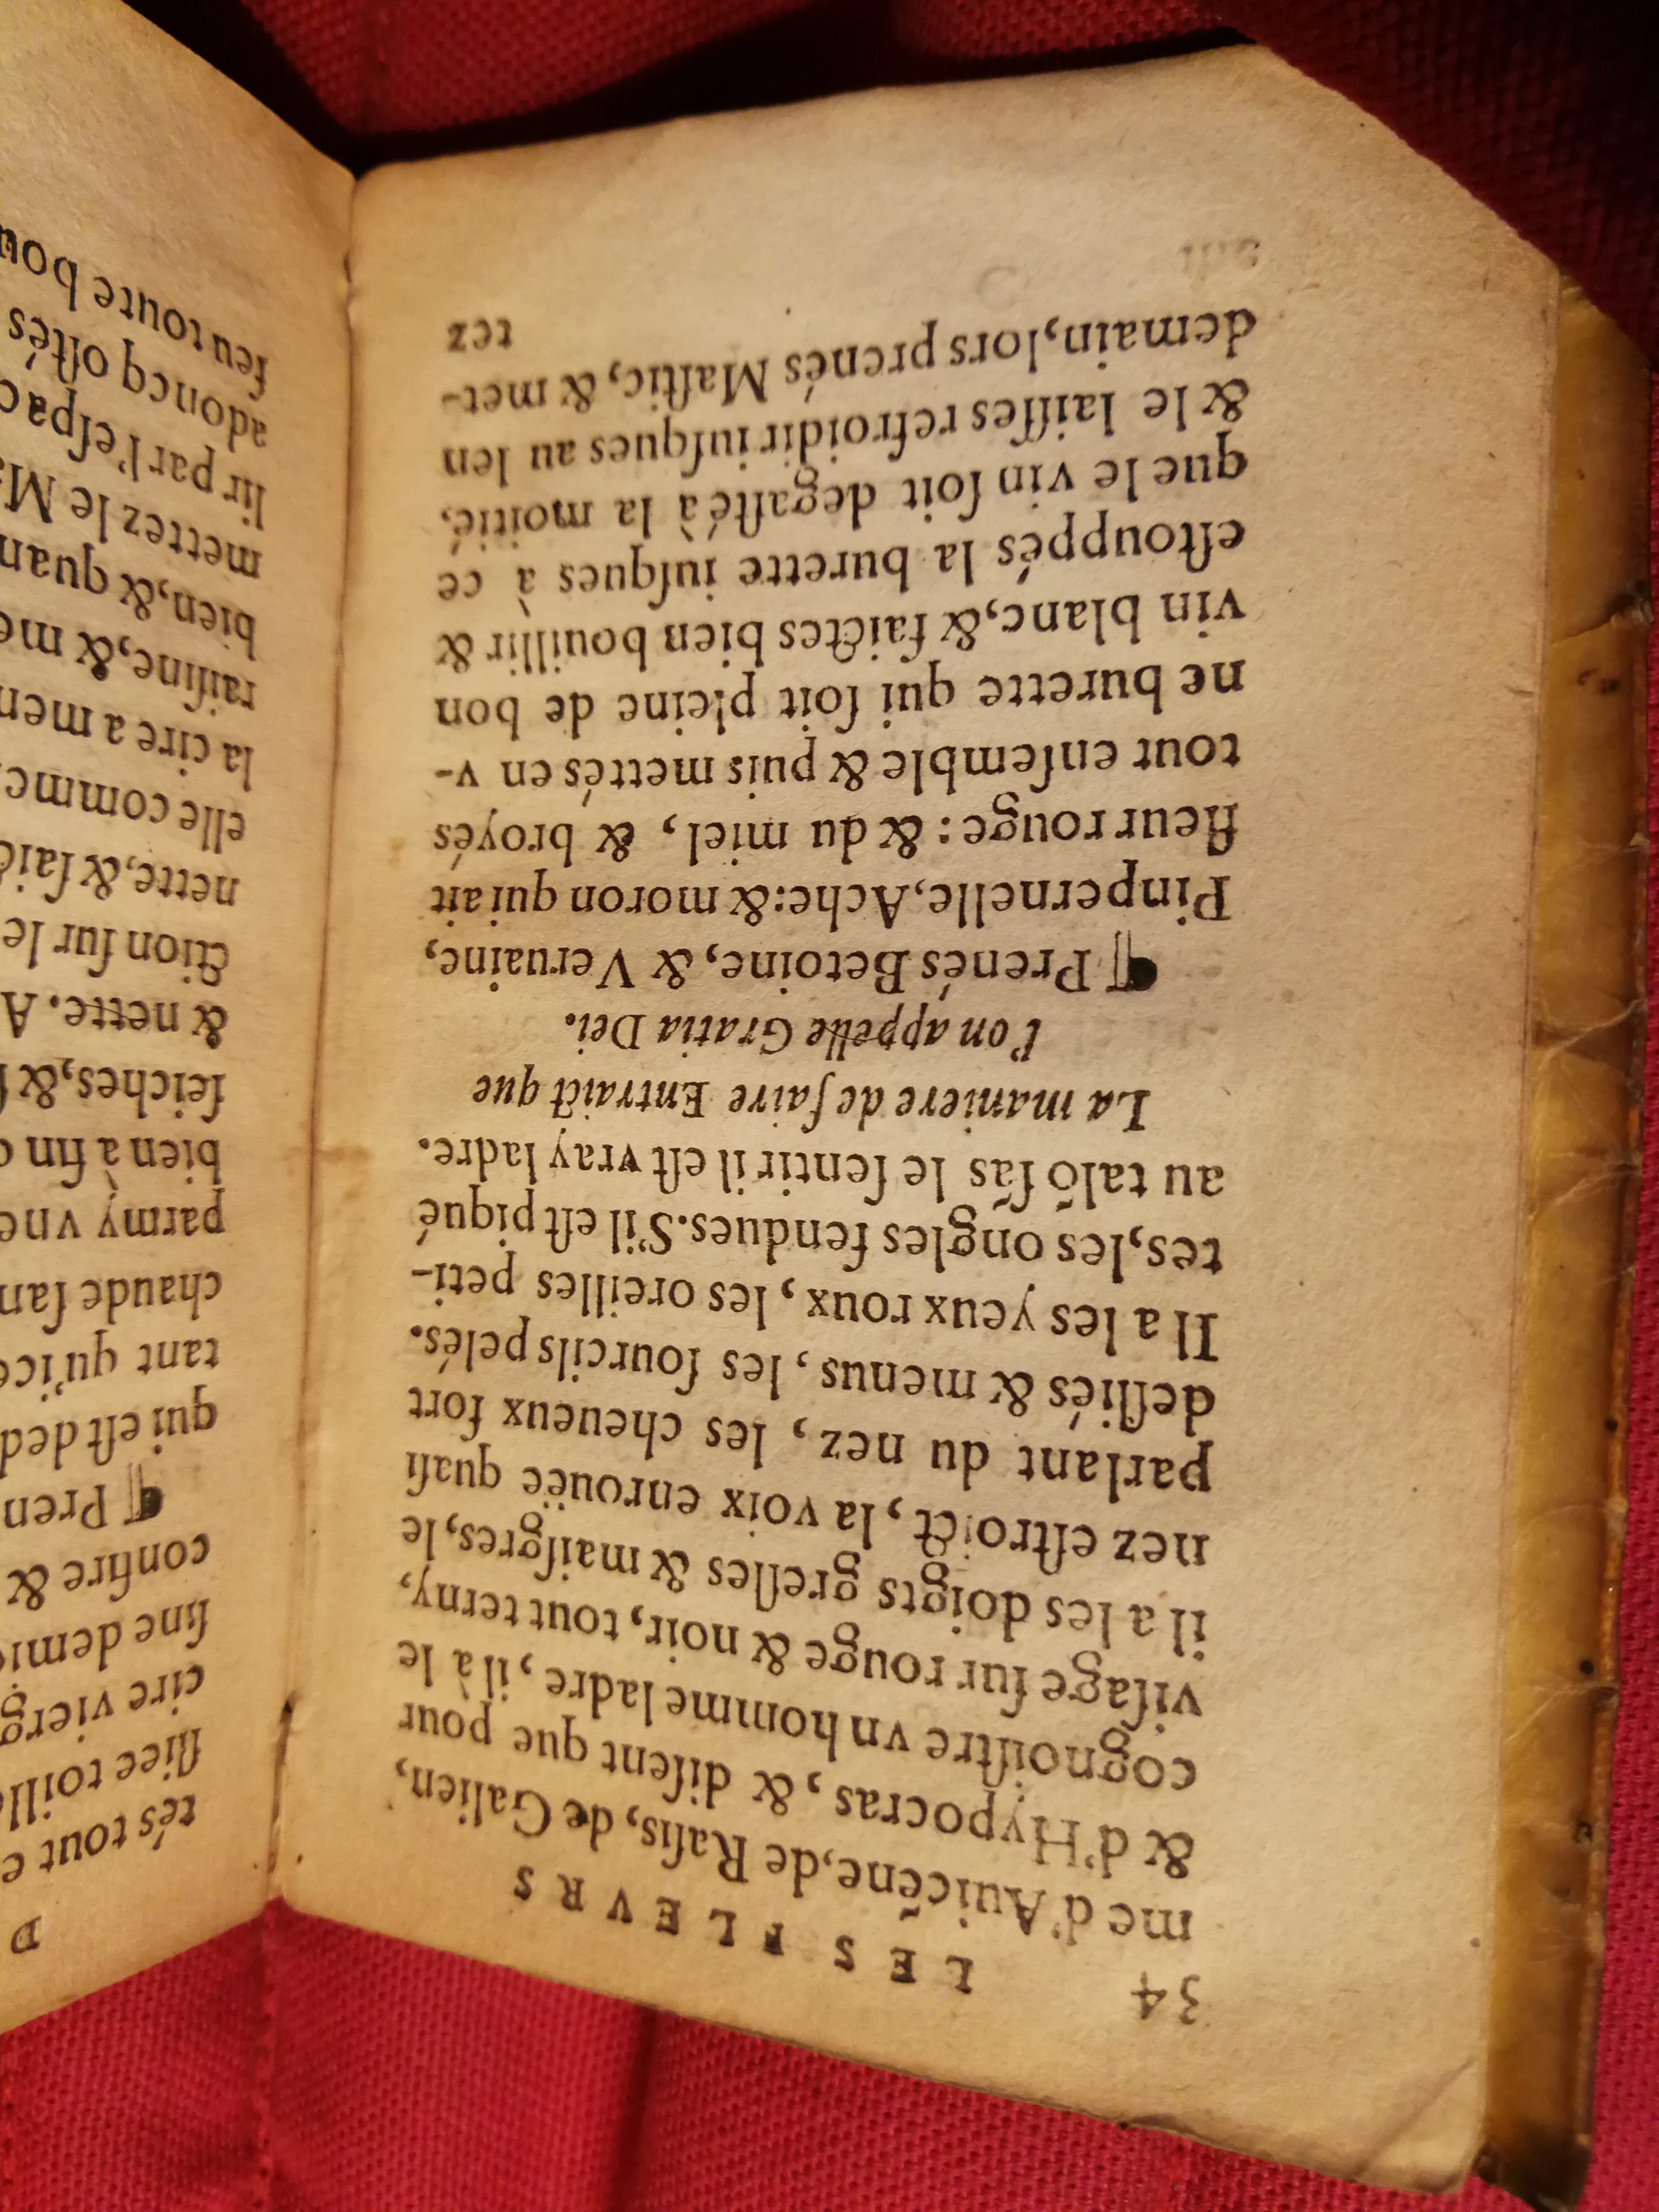 34
LES FLEVRS
me d'Auicēne, de Rasis, de Galien,
& d'Hypocras, & disent que pour
cognoiſtre vn homme ladre, il à le
viſage ſur rouge & noir, tout terny,
il a les doigts greſles & maiſgres, le
nez eſtroict, la voix enrouëe quaſi
parlant du nez, les cheueux fort
deſliés & menus, les ſourcils pelés.
Il a les yeux roux, les oreilles peti-
tes, les ongles fendues. S'il eſt piqué
au talō ſās le ſentir il eſt vray ladre.
La maniere de faire Entraict que
l'on appelle Gratia Dei.
¶ Prenés Betoine, & Veruaine,
Pinpernelle, Ache: & moron qui ait
fleur rouge: & du miel, & broyés
tout enſemble & puis mettés en v-
ne burette qui ſoit pleine de bon
vin blanc, & faictes bien bouillir &
eſtouppés la burette iuſques à ce
que le vin ſoit degaſté à la moitié,
& le laiſſes refroidir iuſques au len
demain, lors prenés Maſtic, & met-
tez
D
tés tout e
fliee toill
cire vierg
fine demi
confire &
¶ Pren
qui eſt ded
tant qu'ice
chaude ſan
parmy vne
bien à fin
ſeiches, &
& nette. A
ction ſur le
nette, & ſai
elle comme
la cire a men
raiſine, & me
bien, & quan
mettez le M
lir par l'eſpac
adoncq oſtés
feu toute bou